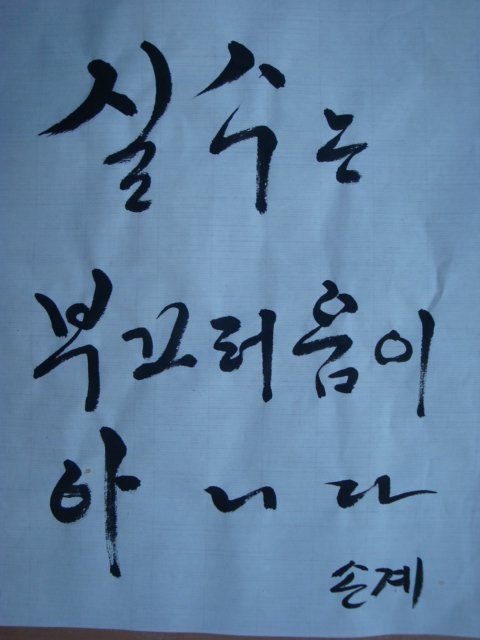 실수는
부끄러움이
아니다
손계